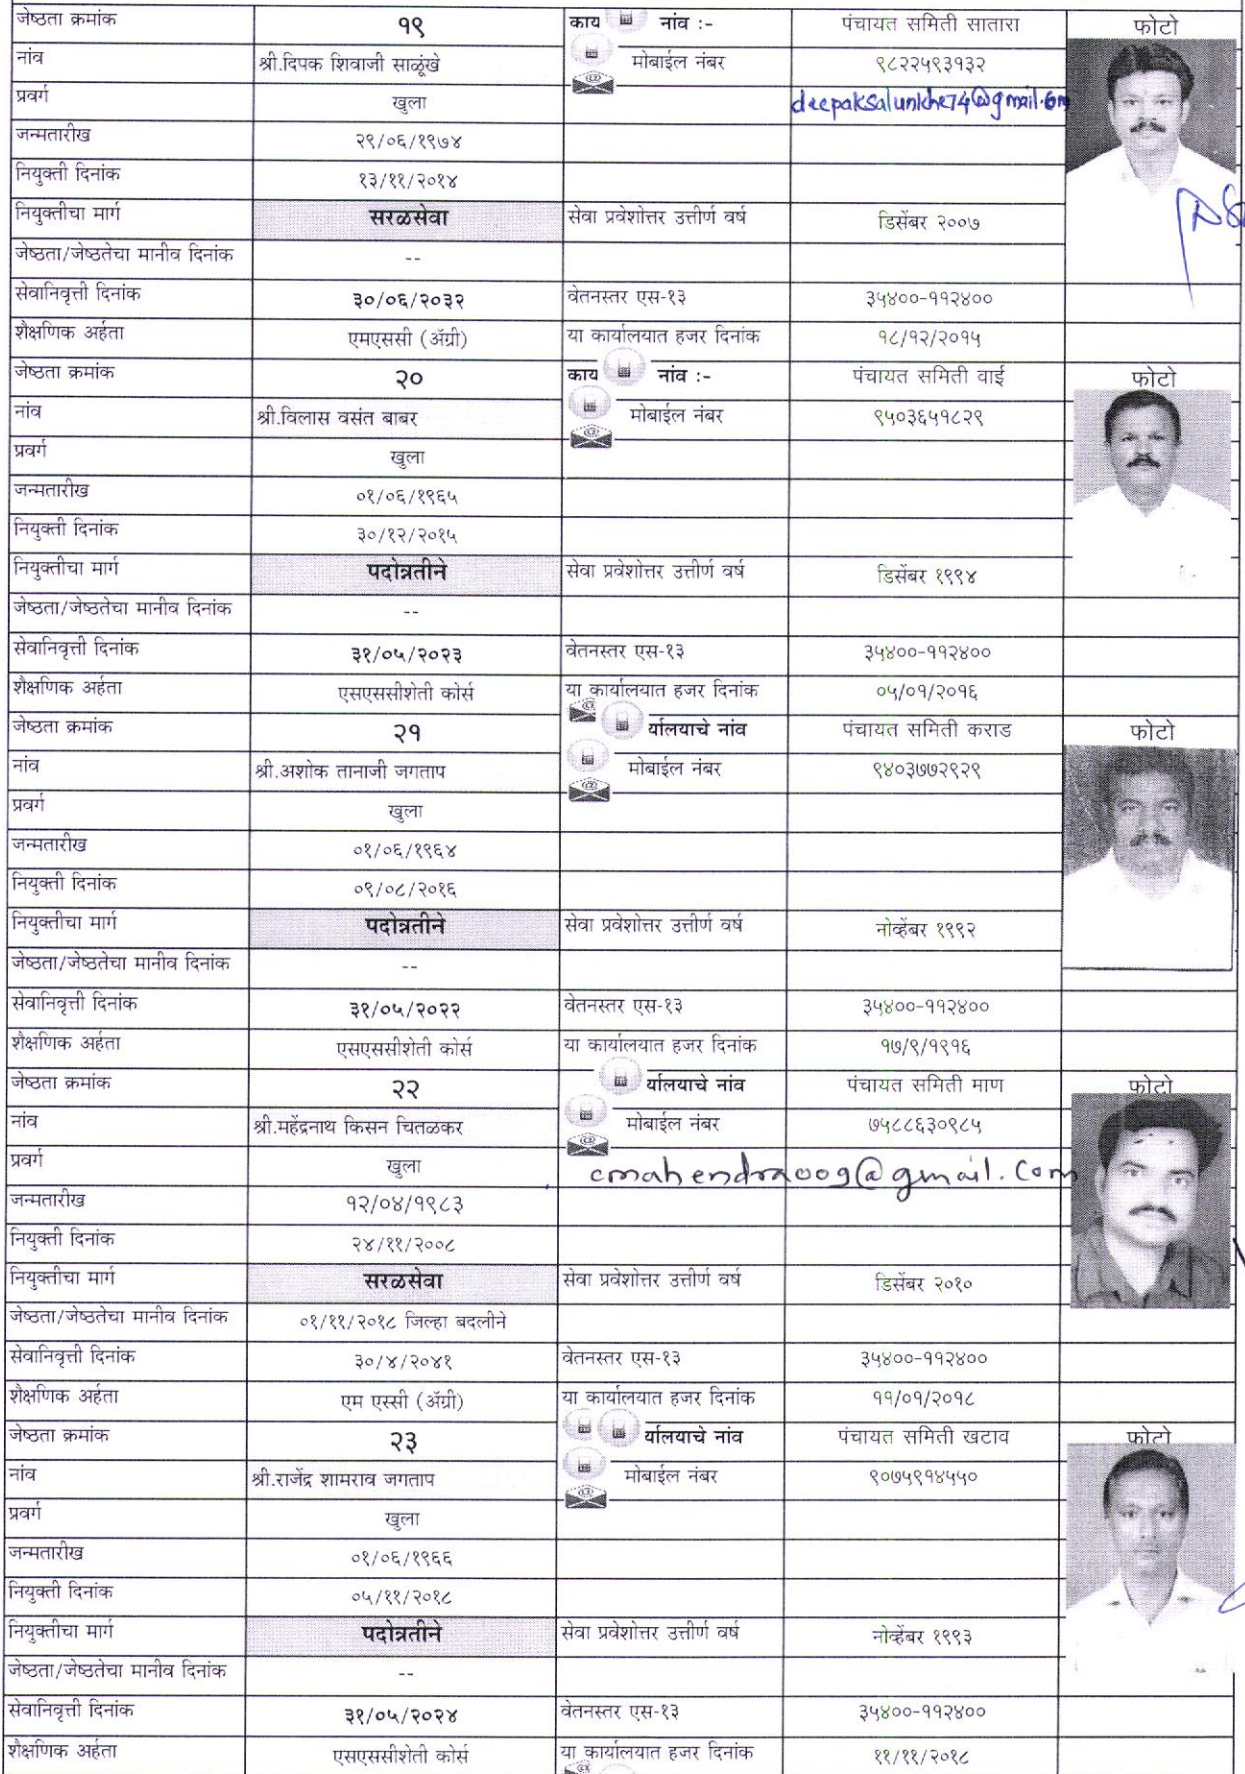 जेष्ठता क्रमांक १९ काय नांव :- पंचायत समिती सातारा फोटो
नांव श्री.दिपक शिवाजी साळूंखे मोबाईल नंबर ९८२२५९३१३२
प्रवर्ग खुला deepaksalunkhe74@gmail.com
जन्मतारीख २९/०६/१९७४
नियुक्ती दिनांक १३/११/२०१४
नियुक्तीचा मार्ग सरळसेवा सेवा प्रवेशोत्तर उत्तीर्ण वर्ष डिसेंबर २००७
जेष्ठता/जेष्ठतेचा मानीव दिनांक --
सेवानिवृत्ती दिनांक ३०/०६/२०३२ वेतनस्तर एस-१३ ३५४००-११२४००
शैक्षणिक अर्हता एमएससी (ॲग्री) या कार्यालयात हजर दिनांक १८/१२/२०१५
जेष्ठता क्रमांक २० काय नांव :- पंचायत समिती वाई फोटो
नांव श्री.विलास वसंत बाबर मोबाईल नंबर ९५०३६५१८२९
प्रवर्ग खुला
जन्मतारीख ०१/०६/१९६५
नियुक्ती दिनांक ३०/१२/२०१५
नियुक्तीचा मार्ग पदोन्नतीने सेवा प्रवेशोत्तर उत्तीर्ण वर्ष डिसेंबर १९९४
जेष्ठता/जेष्ठतेचा मानीव दिनांक --
सेवानिवृत्ती दिनांक ३१/०५/२०२३ वेतनस्तर एस-१३ ३५४००-११२४००
शैक्षणिक अर्हता एसएससीशेती कोर्स या कार्यालयात हजर दिनांक ०५/०१/२०१६
जेष्ठता क्रमांक २१ र्यालयाचे नांव पंचायत समिती कराड फोटो
नांव श्री.अशोक तानाजी जगताप मोबाईल नंबर ९४०३७७२९२९
प्रवर्ग खुला
जन्मतारीख ०१/०६/१९६४
नियुक्ती दिनांक ०९/०८/२०१६
नियुक्तीचा मार्ग पदोन्नतीने सेवा प्रवेशोत्तर उत्तीर्ण वर्ष नोव्हेंबर १९९२
जेष्ठता/जेष्ठतेचा मानीव दिनांक --
सेवानिवृत्ती दिनांक ३१/०५/२०२२ वेतनस्तर एस-१३ ३५४००-११२४००
शैक्षणिक अर्हता एसएससीशेती कोर्स या कार्यालयात हजर दिनांक १७/९/१९१६
जेष्ठता क्रमांक २२ र्यालयाचे नांव पंचायत समिती माण फोटो
नांव श्री.महेंद्रनाथ किसन चितळकर मोबाईल नंबर ७५८८६३०९८५
प्रवर्ग खुला cmahendra009@gmail.com
जन्मतारीख १२/०४/१९८३
नियुक्ती दिनांक २४/११/२००८
नियुक्तीचा मार्ग सरळसेवा सेवा प्रवेशोत्तर उत्तीर्ण वर्ष डिसेंबर २०१०
जेष्ठता/जेष्ठतेचा मानीव दिनांक ०१/११/२०१८ जिल्हा बदलीने
सेवानिवृत्ती दिनांक ३०/४/२०४१ वेतनस्तर एस-१३ ३५४००-११२४००
शैक्षणिक अर्हता एम एस्सी (ॲग्री) या कार्यालयात हजर दिनांक ११/०१/२०१८
जेष्ठता क्रमांक २३ र्यालयाचे नांव पंचायत समिती खटाव फोटो
नांव श्री.राजेंद्र शामराव जगताप मोबाईल नंबर ९०७५९१४५५०
प्रवर्ग खुला
जन्मतारीख ०१/०६/१९६६
नियुक्ती दिनांक ०५/११/२०१८
नियुक्तीचा मार्ग पदोन्नतीने सेवा प्रवेशोत्तर उत्तीर्ण वर्ष नोव्हेंबर १९९३
जेष्ठता/जेष्ठतेचा मानीव दिनांक --
सेवानिवृत्ती दिनांक ३१/०५/२०२४ वेतनस्तर एस-१३ ३५४००-११२४००
शैक्षणिक अर्हता एसएससीशेती कोर्स या कार्यालयात हजर दिनांक ११/११/२०१८